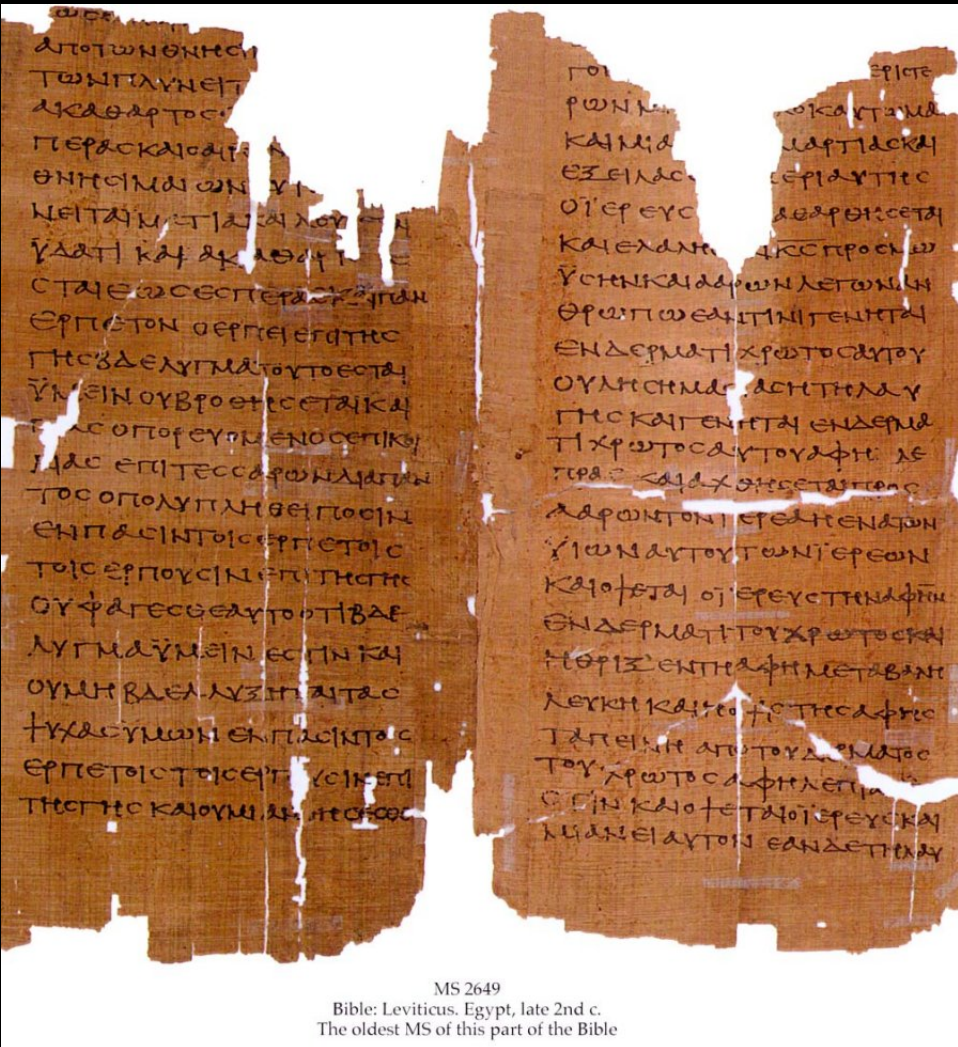 ΑΠΟΤΩΝΘΝΗϹΙ
ΤΩΝΠΛΥΝΕΙΤ
ΑΚΑΘΑΡΤΟϹ
ΠΕΡΑϹΚΑΙΟΑΙΡ Ν
ΘΝΗϹΙΜΑΙΩΝ
ΝΕΙΤΑΙΜ ΤΙΑΚΑΙΛΟΥ
ΫΔΑΤΙ ΚΑΙ ΑΚΑΘΑΡΤ Ε
ϹΤΑΙΕΩϹΕϹΠΕΡΑϹΚΑΙΠΑΝ
ΕΡΠΕΤΟΝ ΟΕΡΠΕΙΕΠΙΤΗϹ
ΓΗϹΒΔΕΛΥΓΜΑΤΟΥΤΟΕϹΤΑΙ
ΫΜΕΙΝΟΥΒΡΟΘΗϹΕΤΑΙΚΑΙ
ΑϹ ΟΠΟΡΕΥΟΜΕΝΟϹΕΠΙΚΟΙ
ΛΙΑϹ ΕΠΙΤΕϹϹΑΡΩΝΔΙΑΠΑΝ
ΤΟϹ ΟΠΟΛΥΠΛΗΘΕΙΠΟϹΙΝ
ΕΝΠΑϹΙΝΤΟΙϹΕΡΠΕΤΟΙϹ
ΤΟΙϹ ΕΡΠΟΥϹΙΝ ΕΠΙΤΗϹΓΗϹ
ΟΥΦΑΓΕϹΘΕΑΥΤΟΟΤΙΒΔΕ
ΛΥΓΜΑΫΜΕΙΝ ΕϹΤΙΝ ΚΑΙ
ΟΥΜΗ ΒΔΕΛΛΥΞΗΤΑΙΤΑϹ
ΨΥΧΑϹΥΜΩΝ ΕΝΠΑϹΙΝΤΟΙϹ
ΕΡΠΕΤΟΙϹΤΟΙϹΕΡΠ ΥϹΙΝΕΠΙ
ΤΗϹΓΗϹ ΚΑΙΟΥΜΙΑΝ ΗϹΕϹΘΕ
ΓΟΙ ΕΡΙϹΤΕ
ΡΩΝΝ ΟΚΑΥΤΩΜΑ
ΚΑΙΜΙΑ ΜΑΡΤΙΑϹΚΑΙ
ΕΞΕΙΛΑϹ ΕΡΙΑΥΤΗϹ
ΟΪΕΡΕΥϹ ΑΘΑΡΘΗϹΕΤΑΙ
ΚΑΙΕΛΑΛΗ ΚϹΠΡΟϹΜΩ
ΫϹΗΝΚΑΙΑΑΡΩΝΛΕΓΩΝΑΝ
ΘΡΩΠΩΕΑΝΤΙΝΙΓΕΝΗΤΑΙ
ΕΝΔΕΡΜΑΤΙΧΡΩΤΟϹΑΥΤΟΥ
ΟΥΛΗϹΗΜΑϹ ΑϹΗΤΗΛΑΥ
ΓΗϹ ΚΑΙΓΕΝΗΤΑΙ ΕΝΔΕΡΜΑ
ΤΙΧΡΩΤΟϹΑΥΤΟΥΑΦΗ ΛΕ
ΠΡΑϹ ΚΑΙΑΧΘΗϹΕΤΑΙΠΡΟϹ
ΑΑΡΩΝΤΟΝΙΕΡΕΑΗΕΝΑΤΩΝ
ΫΙΩΝ ΑΥΤΟΥΤΩΝΪΕΡΕΩΝ
ΚΑΙΟΨΕΤΑΙ ΟΪΕΡΕΥϹΤΗΝΑΦΗΝ
ΕΝΔΕΡΜΑΤΙΤΟΥΧΡΩΤΟϹΚΑΙ
ΗΘΡΙΞ ΕΝΤΗΑΦΗΜΕΤΑΒΑΛΗ
ΛΕΥΚΗ ΚΑΙΗΟΨΙϹΤΗϹΑΦΗϹ
ΤΑΠΕΙΝΗ ΑΠΟΤΟΥΔΕΡΜΑΤΟϹ
ΤΟΥΧΡΩΤΟϹΑΦΗΛΕΠΡΑ
ϹΤΙΝ ΚΑΙΟΨΕΤΑΙΟΪΕΡΕΥϹΚΑΙ
ΜΙΑΝΕΙΑΥΤΟΝ ΕΑΝΔΕΤΗΛΑΥ
MS 2649
Bible: Leviticus. Egypt, late 2nd c.
The oldest MS of this part of the Bible